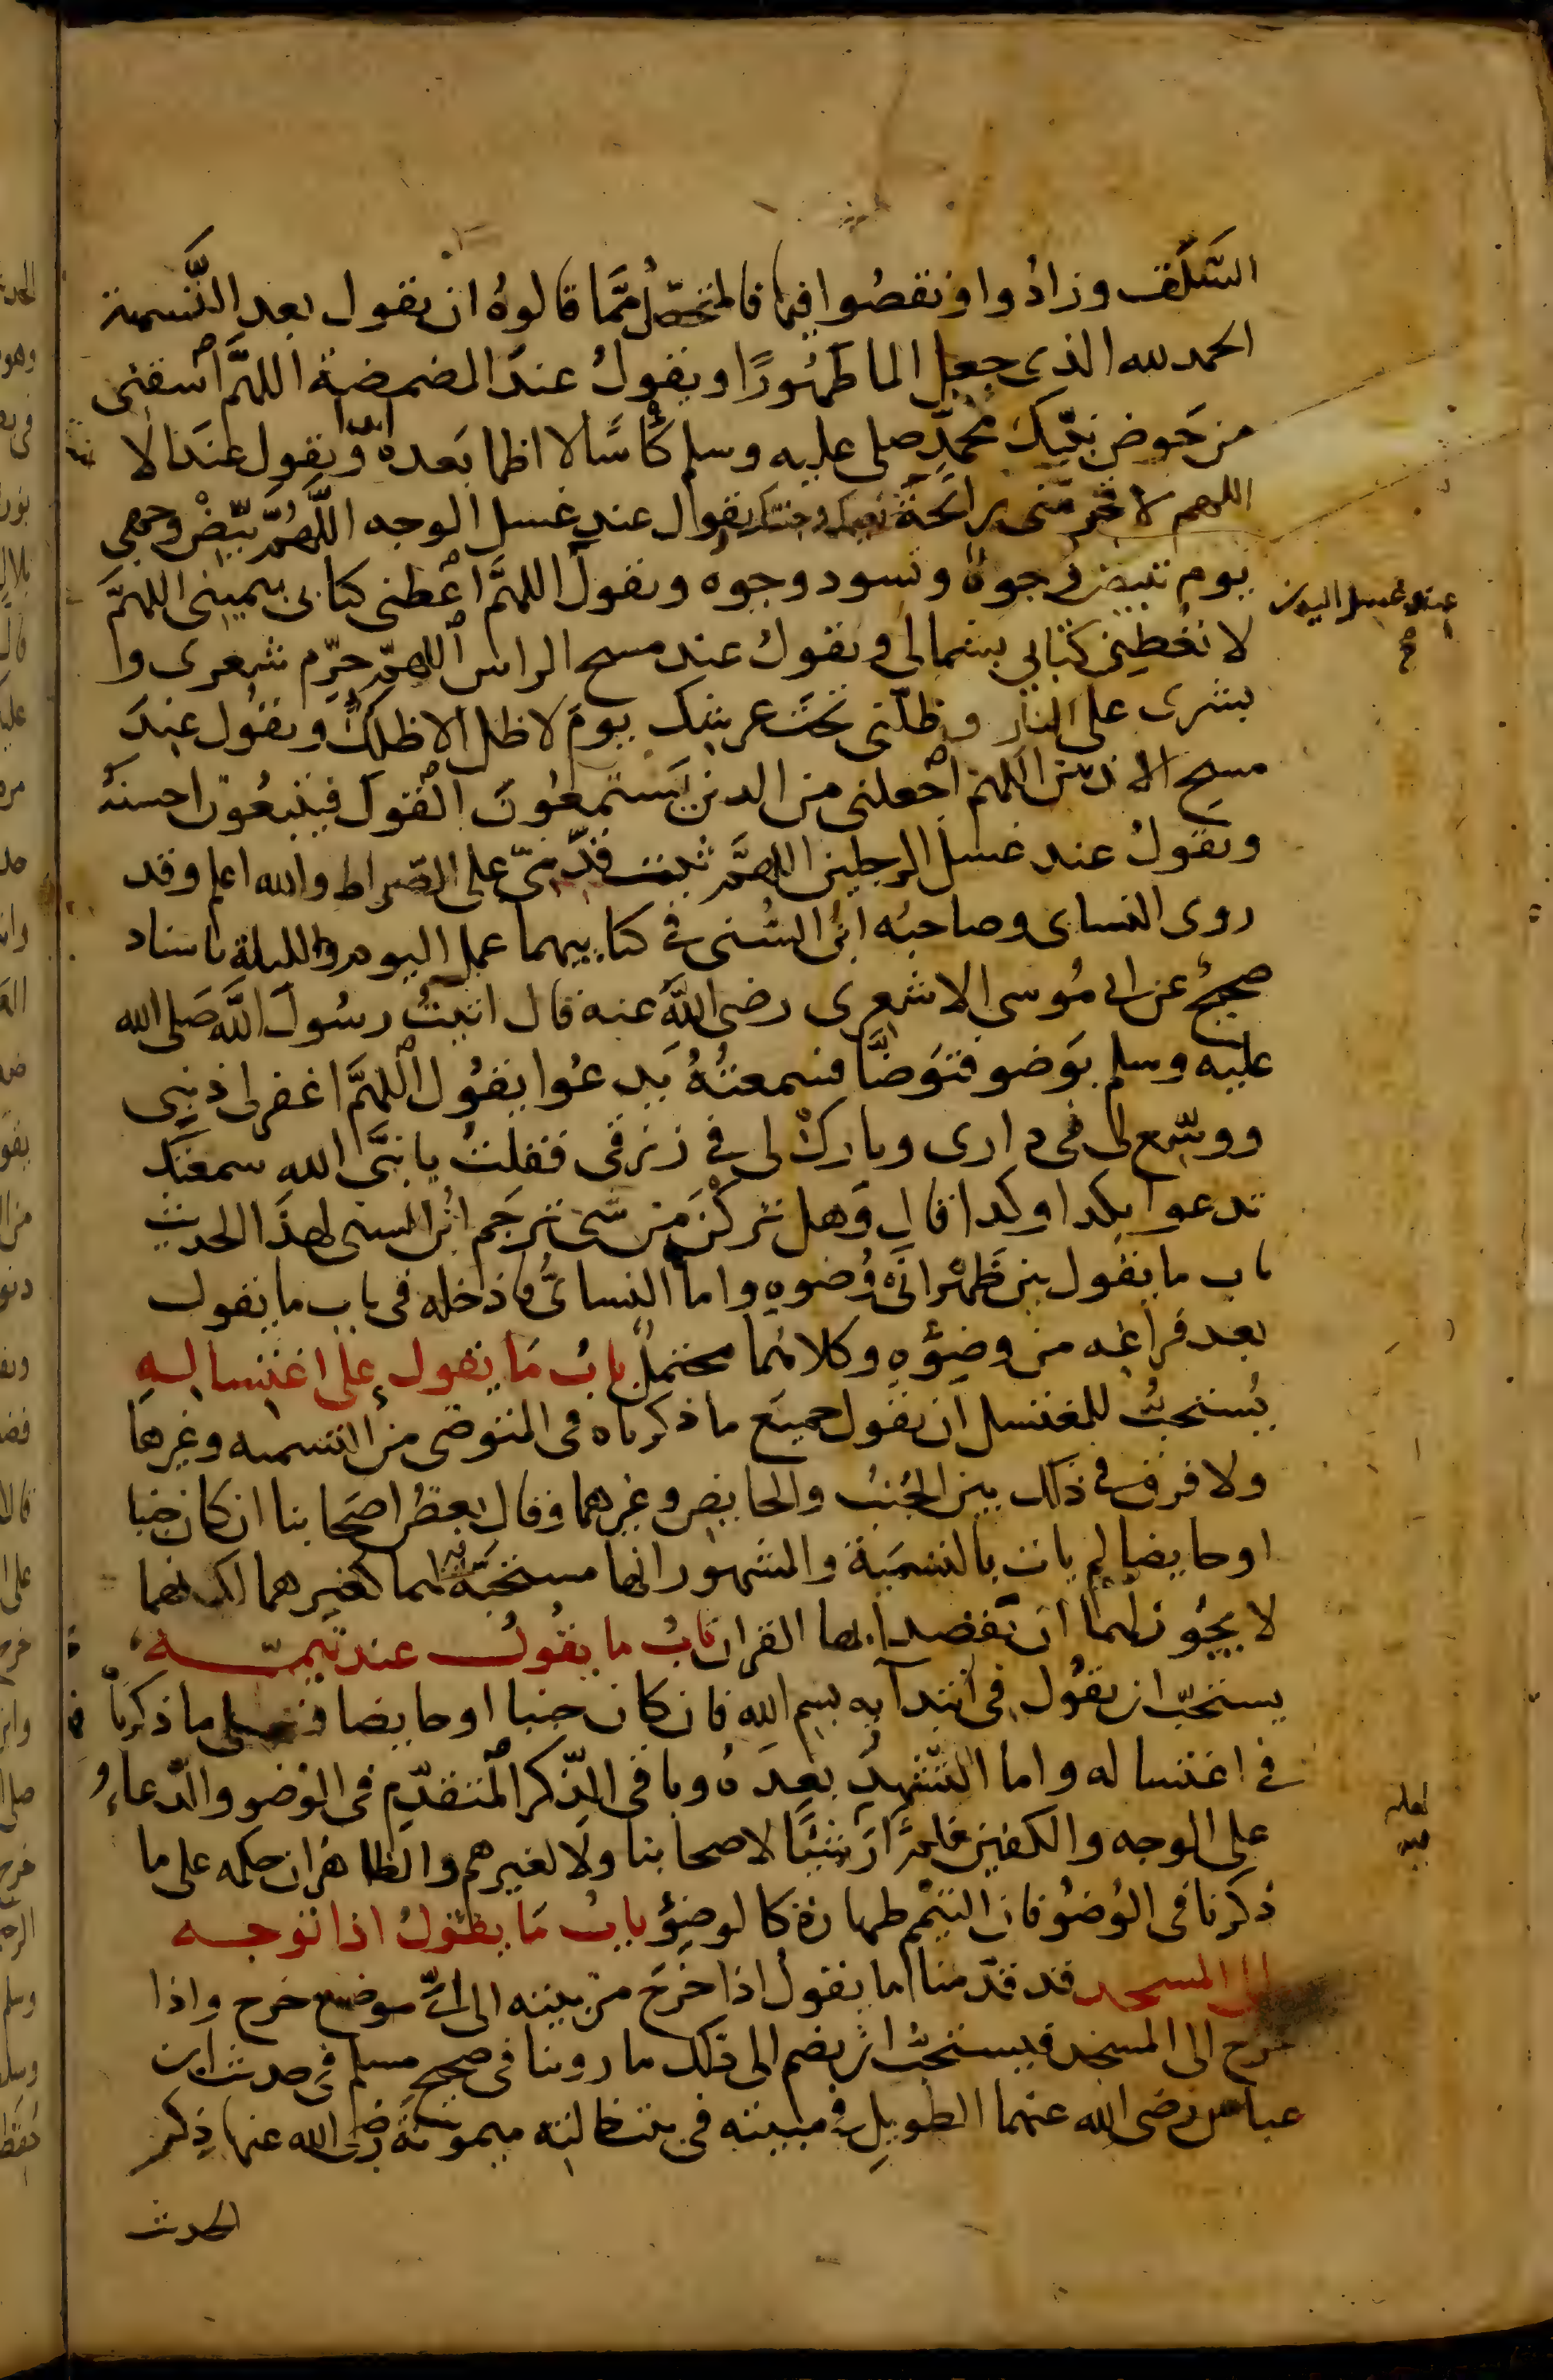 السَّلَف وزادُوا ونقصُوا فيها فالمتحصّل مَّما قالوهُ ان يقول بعد التَّسمية
الحمد لله الذي جعل الما طَهُورًا ويقولُ عندَ المضمضة اللهمَّ اسقني
من حَوض نبيّك محمّدٍ صلى عليه وسلم كأسًا لا اظما بَعده ابدا ويقول عندَ الا
اللهم لا تحرمنى رائحة نعيمك وجنتك يقول عند غسل الوجه اللَّهُمَّ بَيّضْ وجهي
يوم تبيض وجوهٌ وتسود وجوه ويقول اللهمَّ اعْطني كتابى بيميني اللهمَّ
عند غسل اليدين
صح
لا تعْطِيني كتابي بشمالي ويقولُ عند مسح الراس اللهمّ حرّم شعرى وا
بشرى على النار وظلّني تحَت عرشِك يومَ لا ظل الا ظلك ويقول عندَ
مسح الاذنين اللهم اجْعلني من الدين يَستمعُونَ القول فيتبعُون احسنهُ
ويقولُ عند غسل الرجلين اللهمَّ ثبت قدّميّ على الصّراط والله اعلم وقد
روى النساى وصاحبُه ابنُ السُّنى في كتابيهما عمل اليوم والليلة باسناد
صحيحٌ عن ابى مُوسى الاشعرى رضى اللهُ عنه قال اتيتُ رسُولَ اللَّه صَلى الله
عليه وسلم بوَضو فتوَضَّا فسمعتُهُ يَدعُوا يقُول اللهمَّ اغفر لى ذنبِى
ووسّع لى فى دارى وباركْ لى في رزقى فقلتُ يا نبَّى الله سمعتك
تدعوا بكدا وكدا قال وَهل تركْنَ من شىٍ ترجَم ابُن السنى لهذَا الحديث
باب ما يقول بين ظَهْرانَى وُضوهِ واما النسائىُّ فادْخله فى باب ما يقول
بعد فراغه من وضوُءِهِ وكلاهُما محتملٌ بابُ مَا يقول على اغتساله
يُستحبُّ للمغتسل ان يقول جميعَ ما ذكرناه فى المتوضى من التسميه وغيرها
ولا فرق في ذلك بين الجُنبُ والحايض وغيرهما وقال بعضُ اصحَابنا ان كان جنبا
او حايضا لم يات بالتسمَية والمشهُور انها مستحبَّة لهما كغيرهما لكنهما
لا يجُوز لهما ان يَقصدا بها القران بابُ ما يقولُ عند تيممّه
يستحبّ ان يقُول فى ابتدآيه بسم الله فان كان جنبا او حايضا فعلى ما ذكرنا
في اغتساله واما التشّهدِ بعدهُ وباقى الذّكر المتقدّم فى الوضو والدّعاءُ
على الوجه والكفين فلمْ ارَ شيئًا لاصحابنا ولا لغيرهم والظاهر ان حكمه على ما
لعله
فيه
ذكرنا فى الوُضوُ فان التيمّم طهارة كالوضوُ بابُ مَا يقولُ اذا توجه
الى المسجد قد قدّمنا ما يقولُ اذا خرَج من بيته الى اىّ موضع خرج واذا
خرج الى المسجد فيستحبُّ ان يضم الى ذلك ما روينا فى صحيح مسلم فى حديث ابن
عباس رضى الله عنهما الطويل في مبيته فى بيت خالته ميمونَة رضى الله عنها ذِكر
الحديث